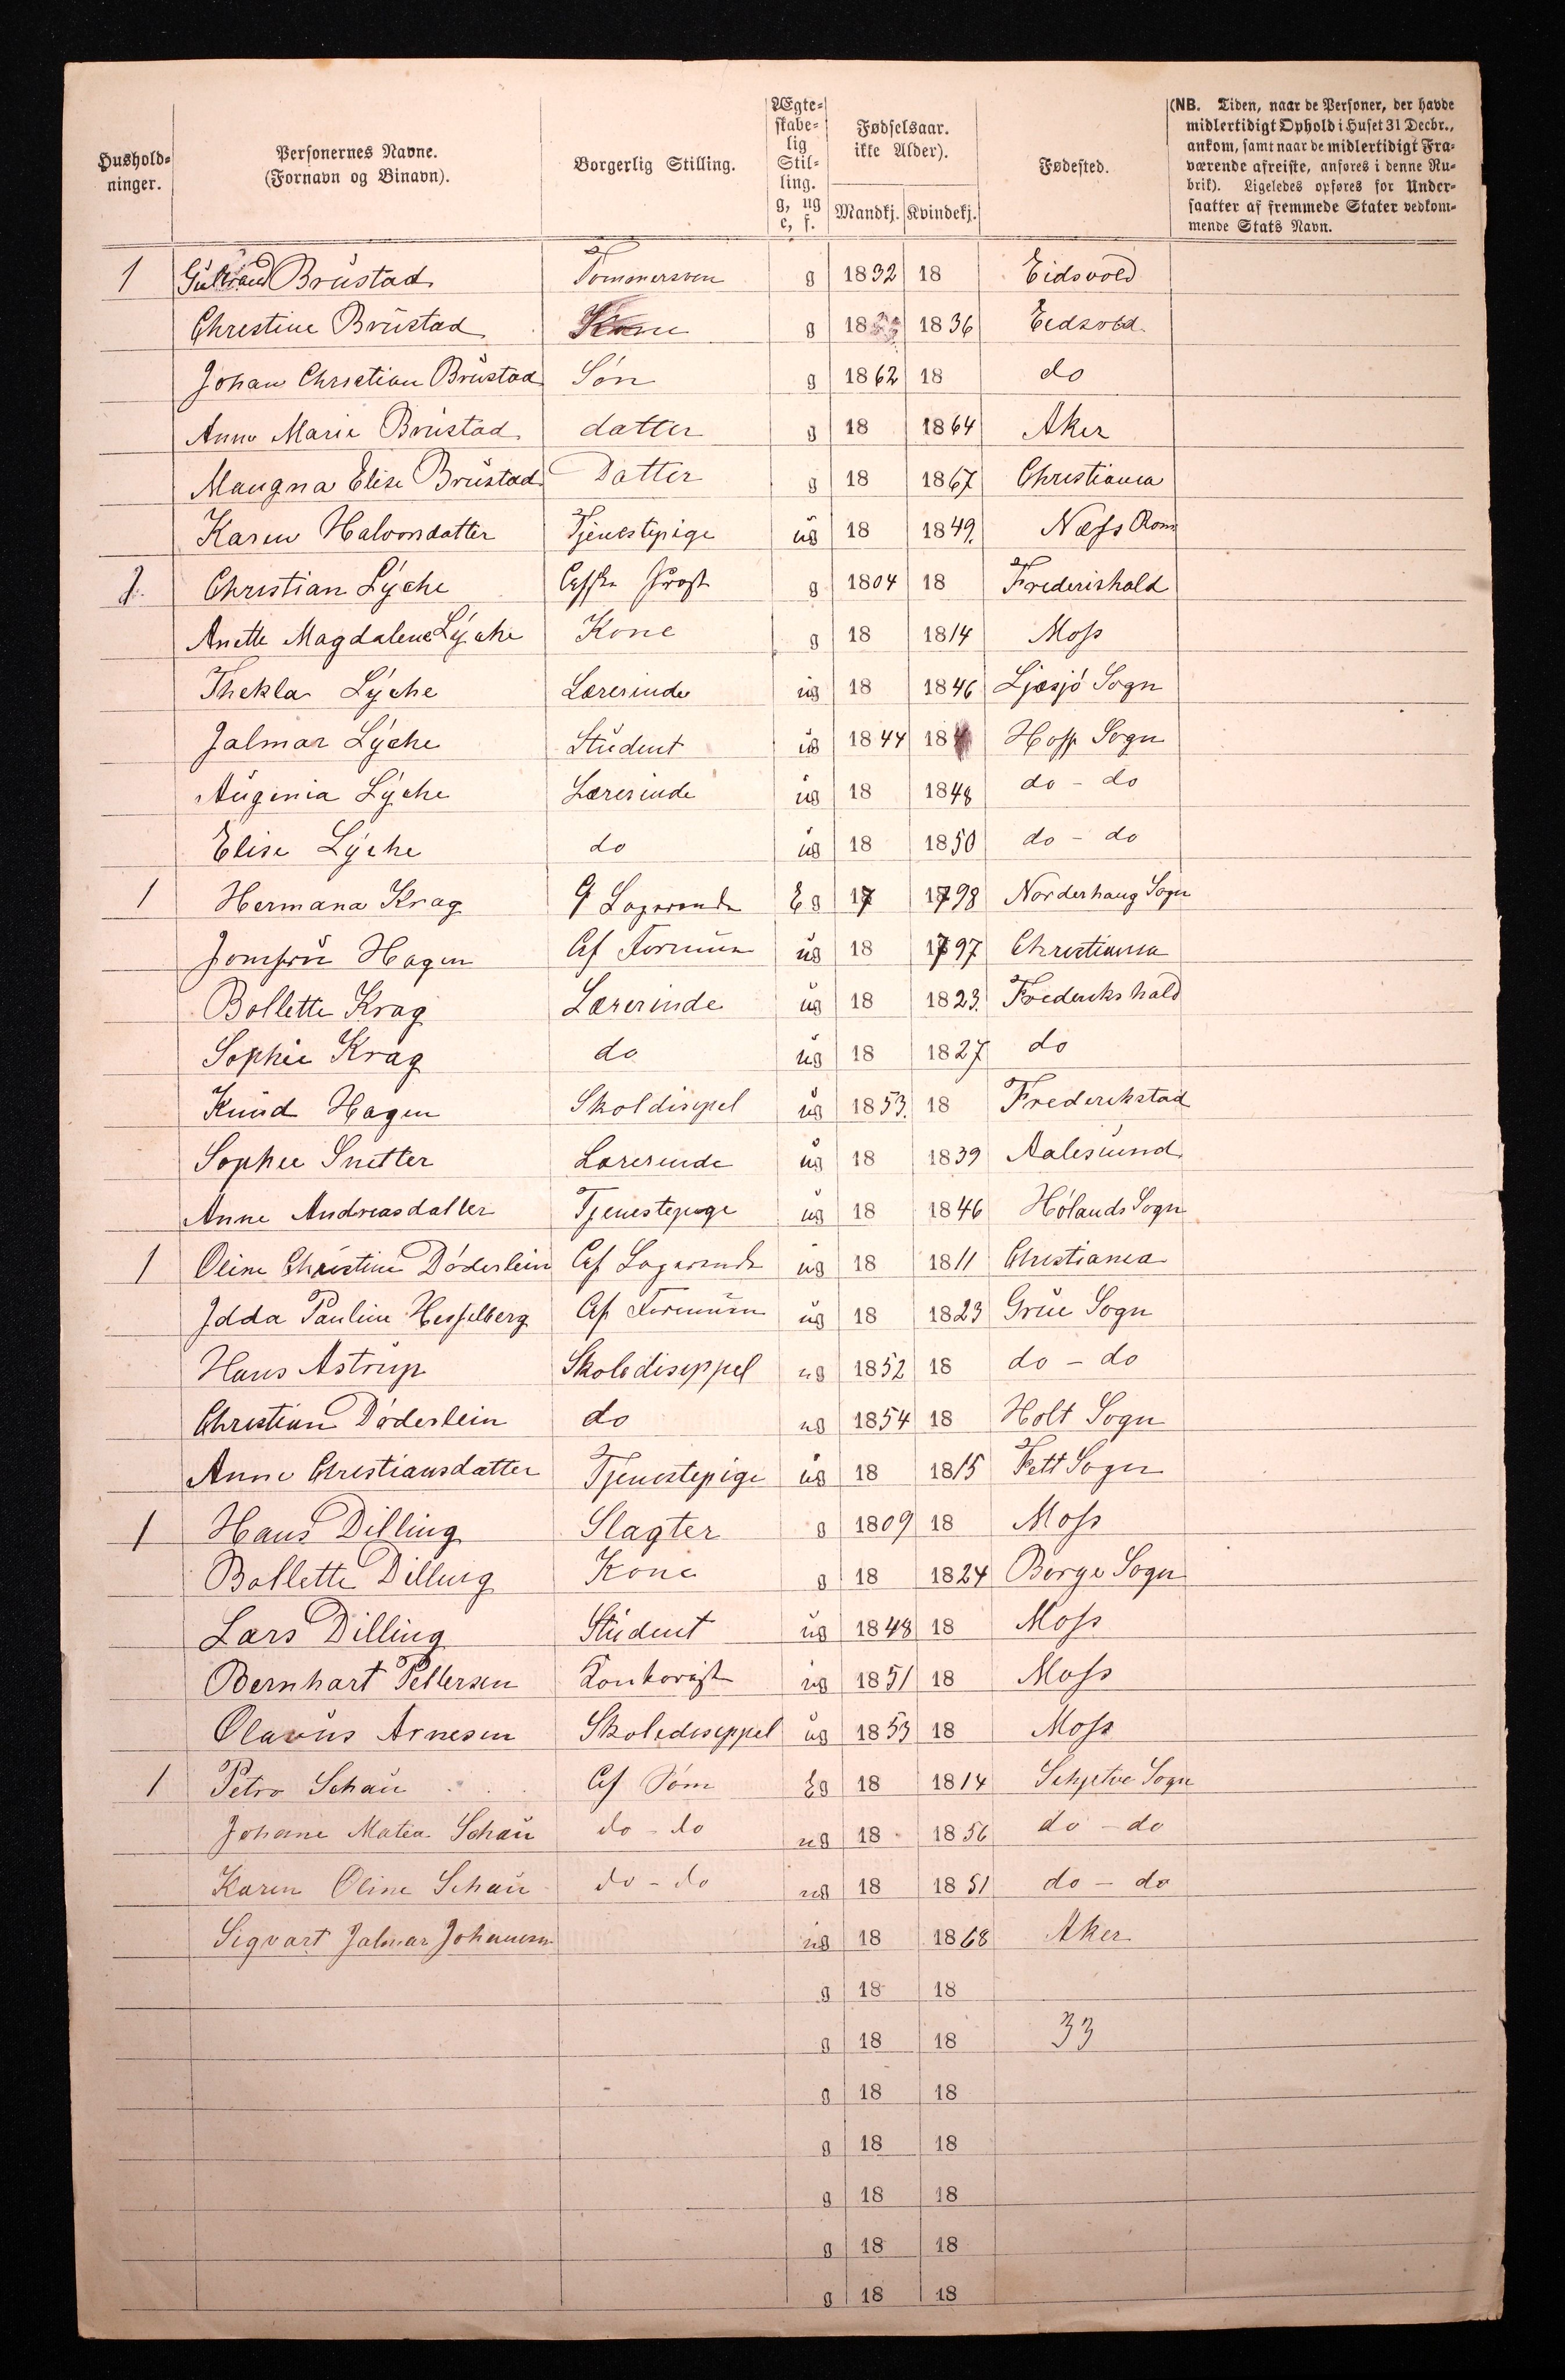 Hushold-
ninger.
Personernes Navne.
(Fornavn og Binavn).
Borgerlig Stilling.
Ægte-
skabe-
lig
Stil-
ling.
g, ug
e, f.
Fødselsaar.
ikke Alder).
Mandkj. Kvindekj.
Fødested.
(NB. Tiden, naar de Personer, der havde
midlertidigt Ophold i Huset 31 Decbr.,
ankom, samt naar de midlertidigt Fra-
værende afreiste, anføres i denne Ru-
brik). Ligeledes opføres for Under-
saatter af fremmede Stater vedkom-
mende Stats Navn.
1 Brüstad Tømmersven g 1832 18 Eidsvold
Christine Brüstad Kone g 18 1836 Eidsvold
Johan Christian Brüstad Søn g 1862 18 do
Anne Marie Brüstad datter g 18 1864 Aker
Maugna Elise Brüstad Datter g 18 1867 Christiania
Karen Halvorsdatter Tjenestepige üg 18 1849. Næss Rom
Christian Lÿche Provst g 1804 18 Frederishald
Anette Magdalene Lÿche Kone g 18 1814 Moss
Thekla Lÿche Lærerinde üg 18 1846 Sogn
Jalmar Lÿche Stüdent üg 1844 18 Hoff Sogn
Aügenia Lÿche Lærerinde üg 18 1848 do - do
Elise Lÿche do üg 18 1850 do - do
1 Hermana Krag Eg 17 1798 Norderhaug Sogn
Jomfrü Hagen Af Formüe üg 18 1797 Christiania
Bollette Krag Lærerinde üg 18 1823. Frederikshald
Sophie Krag do üg 18 1827 do
Knüd Hagen Skoldisepel üg 1853. 18 Frederikstad
Sophie Snitter Lærerinde üg 18 1839 Aalesünd
Anne Andreasdatter Tjenestepige üg 18 1846 Hølands Sogn
1 Oline Christine Döderlein Af üg 18 1811 Christiania
Jdda Pauline Hesselberg Af Formüen üg 18 1823 Grüe Sogn
Hans Astrüp Skolediseppel ug 1852 18 do - do
Christian Döderlein do ug 1854 18 Holt Sogn
Anne Christiansdatter Tjenestepige üg 18 1815 Fett Sogn
1 Hans Dilling Slagter g 1809 18 Moss
Bollette Dilling Kone g 18 1824 Borge Sogn
Lars Dilling Stüdent üg 1848 18 Moss
Bernhart Pettersen Kontorist üg 1851 18 Moss
Olavüs Arnesen Skolediseppel üg 1853 18 Moss
1 Petro Schaü Af Søm Eg 18 1814 Schjetve Sogn
Johane Matea Schaü do - do ug 18 1856 do - do
Karen Oline Schaü do - do ug 18 1851 do - do
Sigvart Jalmar Johansen üg 18 1868 Aker
g 18 18
g 18 18 33
g 18 18
g 18 18
g 18 18
g 18 18
g 18 18